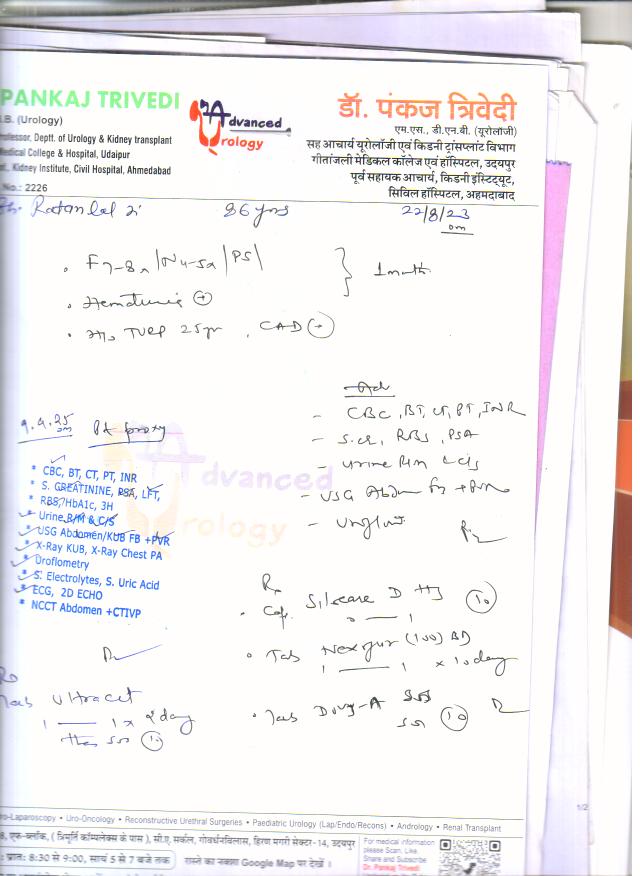 PANKAJ TRIVEDI
.B. (Urology)
rofessor, Deptt. of Urology & Kidney transplant
Medical College & Hospital, Udaipur
Kidney Institute, Civil Hospital, Ahmedabad
No.: 2226
Advanced
Urology
डॉ. पंकज त्रिवेदी
एम.एस., डी.एन.बी. (यूरोलॉजी)
सह आचार्य यूरोलॉजी एवं किडनी ट्रांसप्लांट विभाग
गीतांजली मेडिकल कॉलेज एवं हॉस्पिटल, उदयपुर
पूर्व सहायक आचार्य, किडनी इंस्टिट्यूट,
सिविल हॉस्पिटल, अहमदाबाद
Ratanlal Ji 86 yrs 22/8/23
1 month
Hematuria +
H/o TURP 25yr, CAD +
Adv
- CBC, BT, CT, PT, INR
- S.cr, RBS, PSA
- Urine R/M & C/S
- USG Abdomen
9.4.25 Pt proxy
* CBC, BT, CT, PT, INR
* S. CREATININE, PSA, LFT,
* RBS/HbA1c, 3H
* Urine R/M & C/S
* USG Abdomen/KUB FB +PVR
* X-Ray KUB, X-Ray Chest PA
* Uroflometry
* S. Electrolytes, S. Uric Acid
* ECG, 2D ECHO
* NCCT Abdomen +CTIVP
Advanced
Urology
Rx
Cap. D HS 10
Tab (100) BD
1 — 1 x 10 day
Tab 10
Tab Ultracet
1 — 1 x day
1/2
ro-Laparoscopy • Uro-Oncology • Reconstructive Urethral Surgeries • Paediatric Urology (Lap/Endo/Recons) • Andrology • Renal Transplant
8, एफ-ब्लॉक, ( त्रिमूर्ति कॉम्पलेक्स के पास ), सी.ए. सर्कल, गोवर्धनविलास, हिरण मगरी सेक्टर-14, उदयपुर
: प्रात: 8:30 से 9:00, सायं 5 से 7 बजे तक रास्ते का नक्शा Google Map पर देखें ।
For medical information
please Scan, Like,
Share and Subscribe
Dr. Pankaj Trivedi